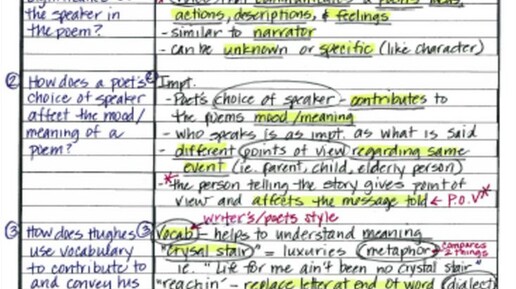 the speaker in
the poem?
actions, descriptions, & feelings
- similar to narrator
- can be unknown or specific (like character)
② How does a poet's
choice of speaker
affect the mood/
meaning of a
poem?
② Impt.
- Poet's choice of speaker - contributes to
the poems mood/meaning
- who speaks is as impt. as what is said
- different points of view regarding same
event (ie. parent, child, elderly person)
-*the person telling the story gives point of
view and affects the message told ← P.O.V*
③ How does Hughes
use vocabulary
to contribute to
and convey his
writer's/poets style
③ Vocab - helps to understand meaning
"crysal stair" = luxuries (metaphor) compares
2 things
ie. "Life for me ain't been no crystal stair."
"reachin" - replace letter at end of word (dialect)